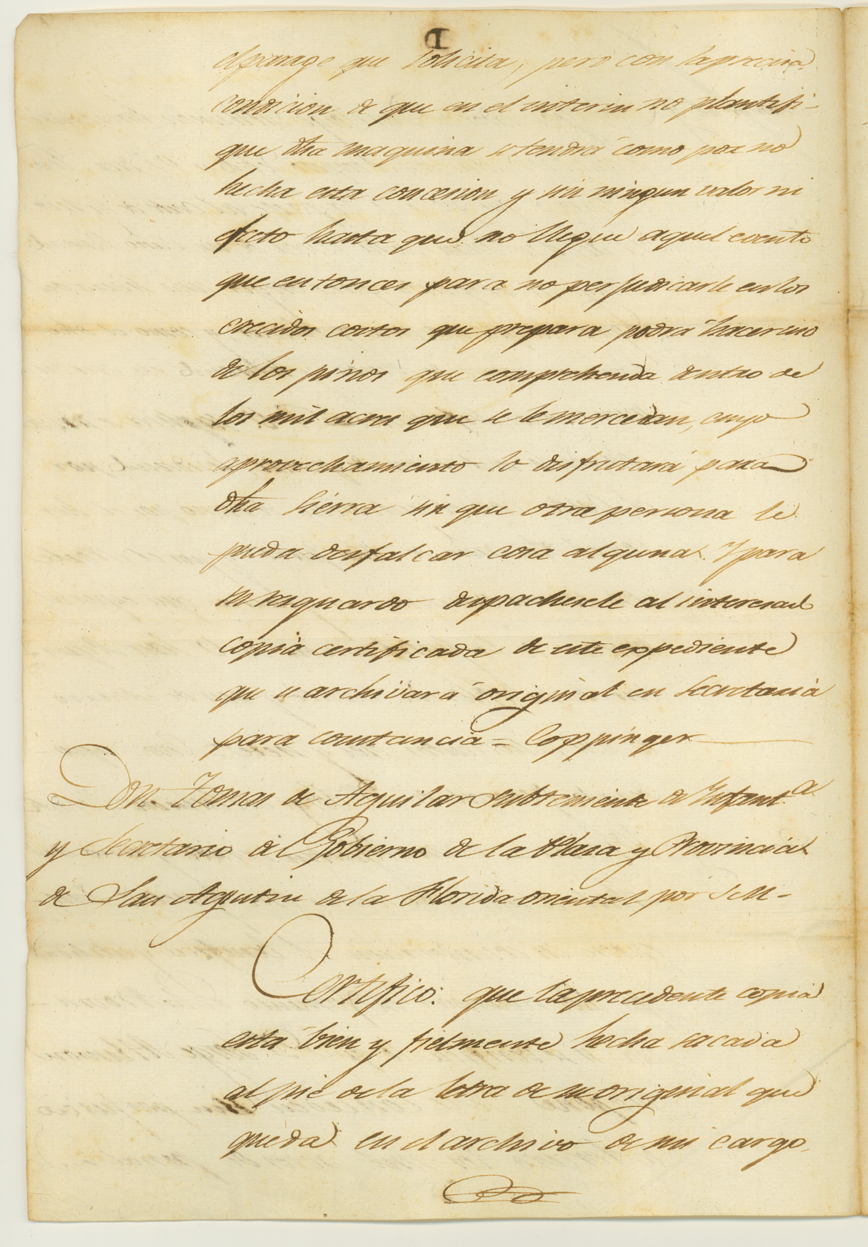 D
el parage que solicita; pero con la precisa
condicion de que en el interin no plantifi-
que dha maquina se tendrá como por no
hecha esta concesion y sin ningun valor ni
efecto hasta que no llegue aquel evento
que entonces para no perjudicarle en los
crecidos costos que prepara podrá hacer uso
de los pinos que comprehenda dentro de
los mil acres que se le mercedan, cuyo
aprovechamiento lo disfrutará para
dha sierra sin que otra persona le
pueda desfalcar cosa alguna. Y para
su resguardo despachesele al interesad
copia certificada de este expediente
que se archivará original en Secretaria
para constancia = Coppinger
Don Tomas de Aguilar subteniente de Infant.a
y Secretario del Gobierno de la Plaza y Provincia
de San Agustin de la Florida oriental por S.M-
Certifico: que la precedente copia
esta bien y fielmente hecha sacada
al pie de la letra de su original que
queda en el archivo de mi cargo.